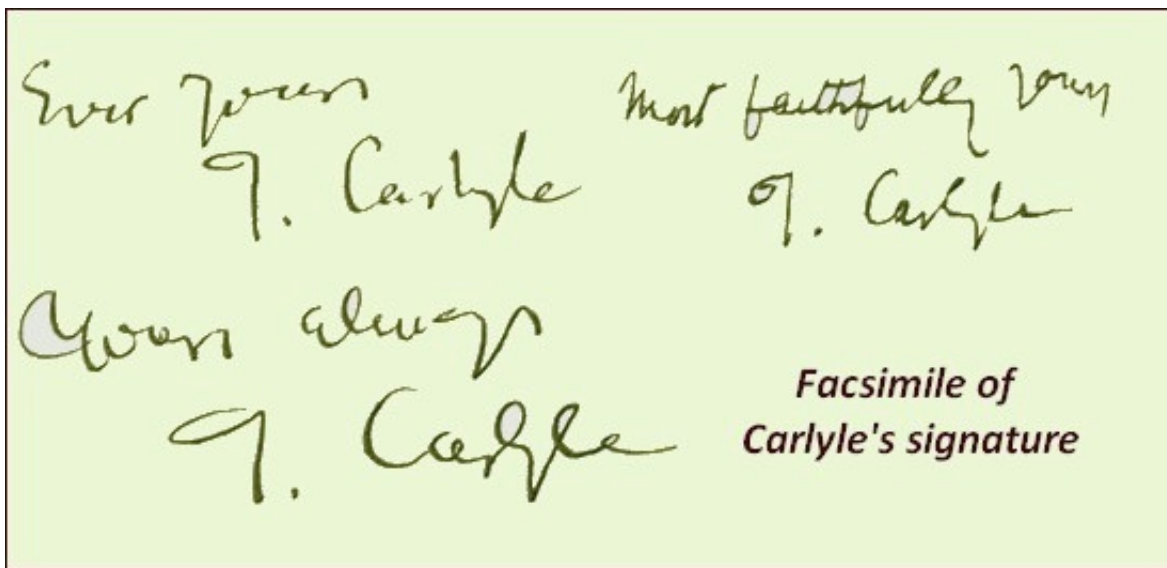 Ever yours
T. Carlyle
Most faithfully yours
T. Carlyle
Yours always
T. Carlyle
Facsimile of
Carlyle's signature